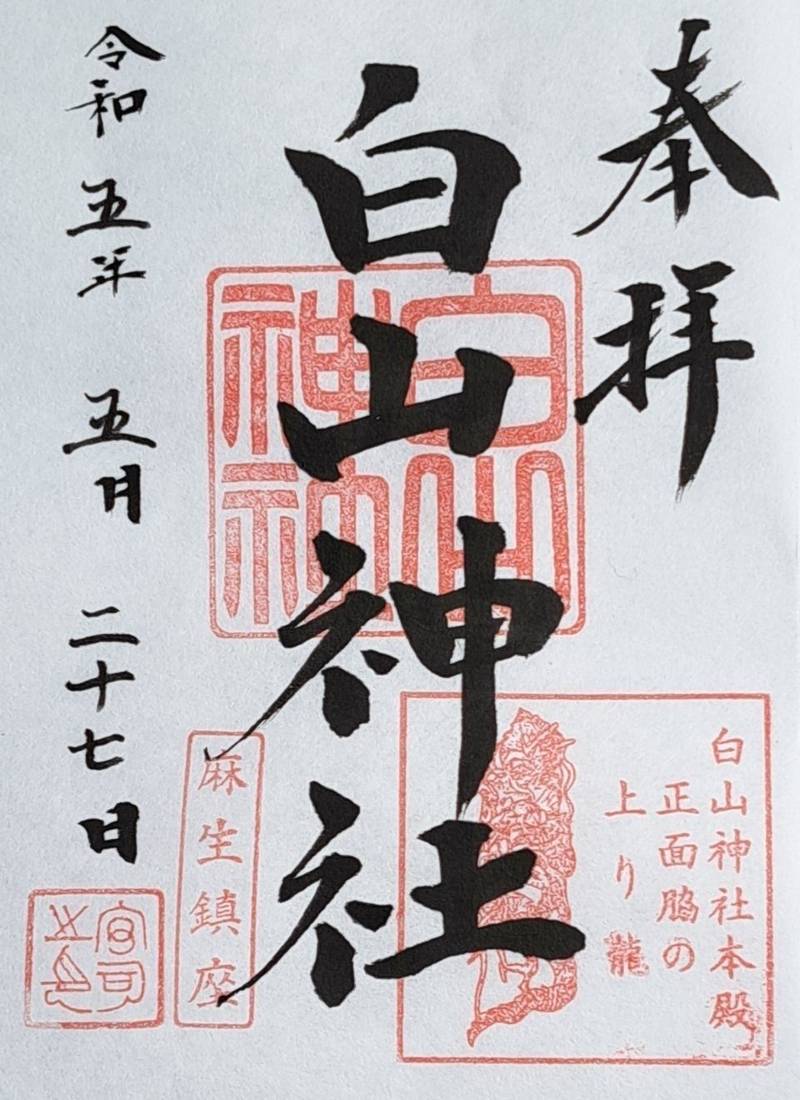 奉拝
白山神社
白山神社
令和五年五月二十七日
白山神社本殿
正面脇の
上り龍
麻生鎮座
宮司